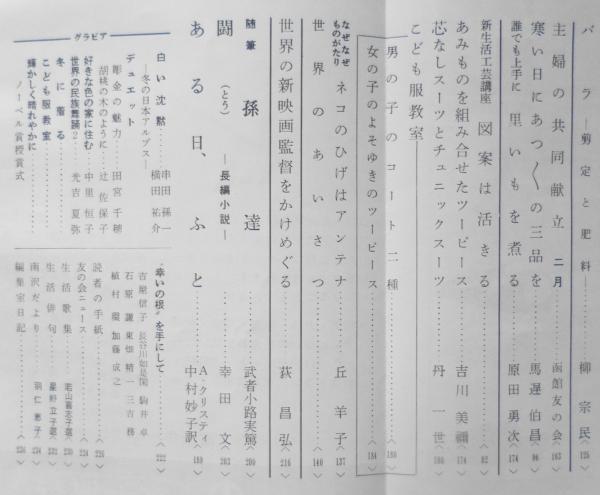 バラ―剪定と肥料― 柳宗民 〈125〉
主婦の共同献立 二月 函館友の会 〈163〉
寒い日にあつ〱の三品を 馬遅伯昌 〈86〉
誰でも上手に 里いもを煮る 原田勇次 〈174〉
新生活工芸講座 図案は活きる 〈82〉
あみものを組み合せたツーピース 吉川美禰 〈174〉
芯なしスーツとチュニックスーツ 丹一世
こども服教室
男の子のコート二種 〈180〉
女の子のよそゆきのツーピース 〈184〉
なぜなぜものがたり ネコのひげはアンテナ 丘羊子 〈137〉
世界のあいさつ 〈140〉
世界の新映画監督をかけめぐる 萩昌弘 〈216〉
随筆 孫達 武者小路実篤 〈200〉
闘(とう) ―長編小説― 幸田文 〈202〉
ある日、ふと A・クリスティ 中村妙子訳 〈189〉
グラビア
白い沈黙 串田孫一
―冬の日本アルプス― 横田祐介
デュエット
彫金の魅力 田宮千穂
胡桃の木のように 辻佐保子
好きな色の家に住む 中里恒子
世界の民族舞踊2 光吉夏弥
冬に着る
こども服教室
輝かしく晴れやかに
ノーベル賞授賞式
"幸いの根"を手にして 〈222〉
吉屋信子 長谷川如是閑 駒井卓
石原謙 東畑精一 三吉務
植村環 加藤成之
読者の手紙 〈226〉
友の会ニュース 〈224〉
生活歌集 若山喜志子選 〈230〉
生活俳句 星野立子選 〈232〉
南沢だより 羽仁恵子 〈234〉
編集室日記 〈236〉